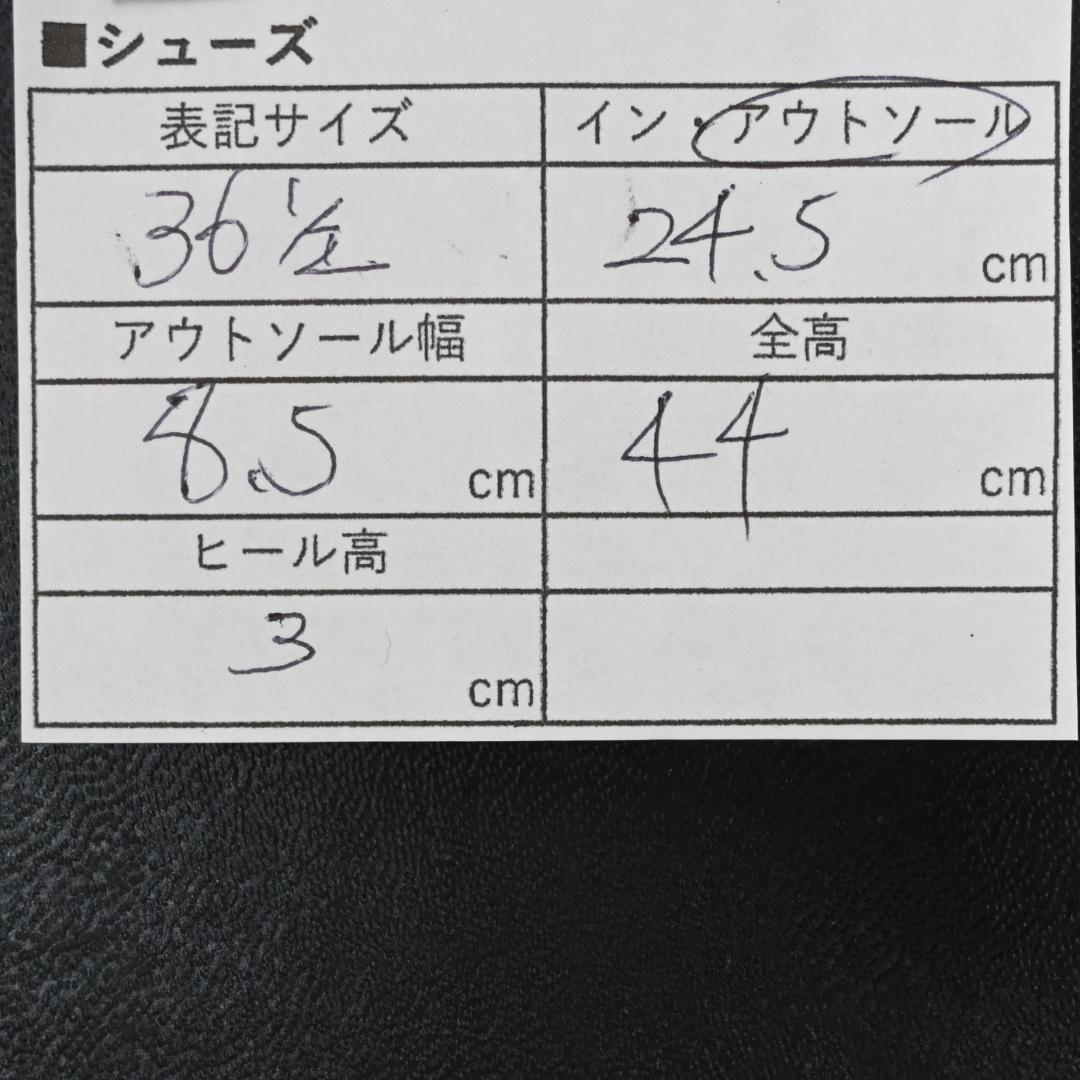 ■シューズ
表記サイズ イン・アウトソール
36 1/2 24.5 cm
アウトソール幅 全高
8.5 cm 44 cm
ヒール高
3 cm